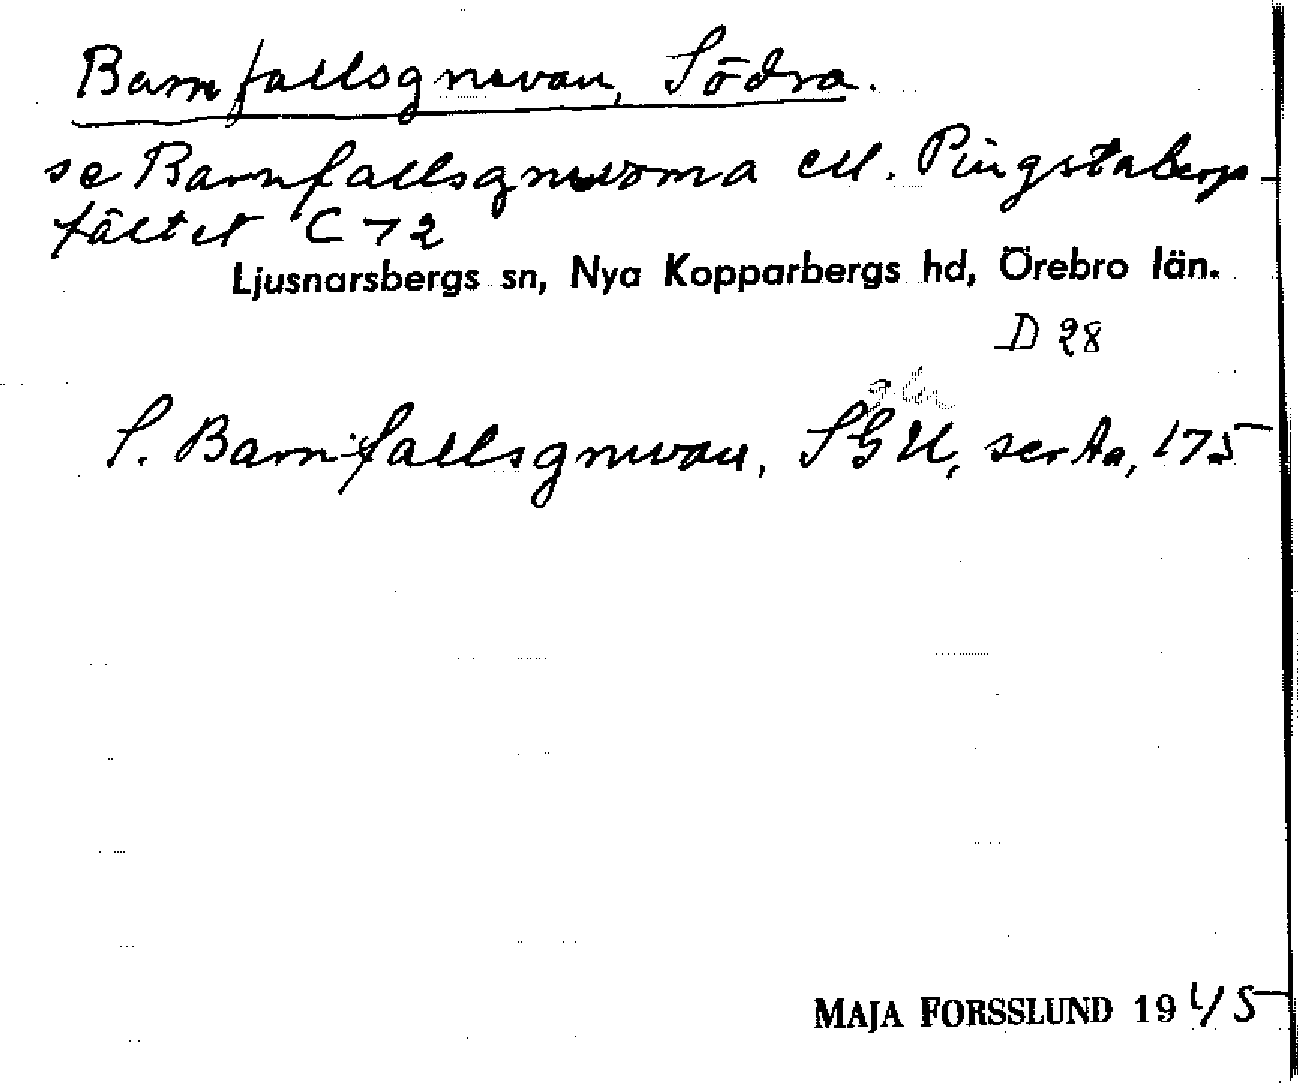 Barnfallsgruvan, Södra.
se Barnfallsgruvorna ell. Pingstabergs-
fältet C 72
Ljusnarsbergs sn, Nya Kopparbergs hd, Örebro län.
D 28
S. Barnfallsgruvan, SGU, ser Aa, 175
MAJA FORSSLUND 1945